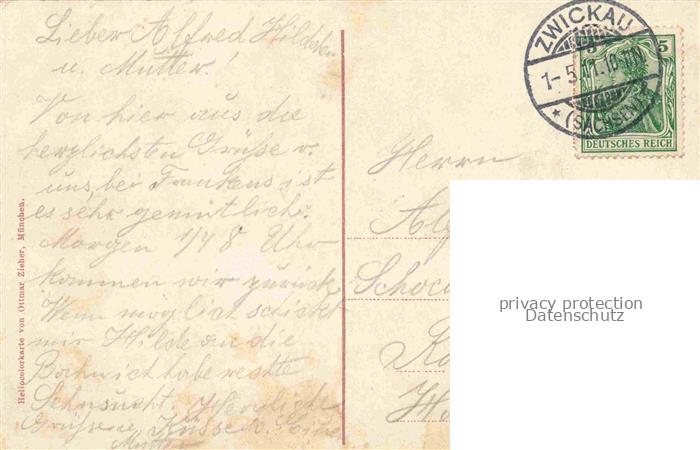 Lieber Alfred Hildchen
u. Mutter!
Von hier aus die
herzlichsten Grüße v.
uns, bei Frankens ist
es sehr gemütlich.
Morgen 1/4 8 Uhr
kommen wir zurück
Wenn möglich schickt
mir Hilde an die
Bahn ich habe rechte
Sehnsucht. Herzliche
Grüsse u. Küsse
Mutter
Heliocolorkarte von Ottmar Zieher, München.
ZWICKAU
1-5.
(SACHSEN)
5
DEUTSCHES REICH
Herrn
privacy protection
Datenschutz